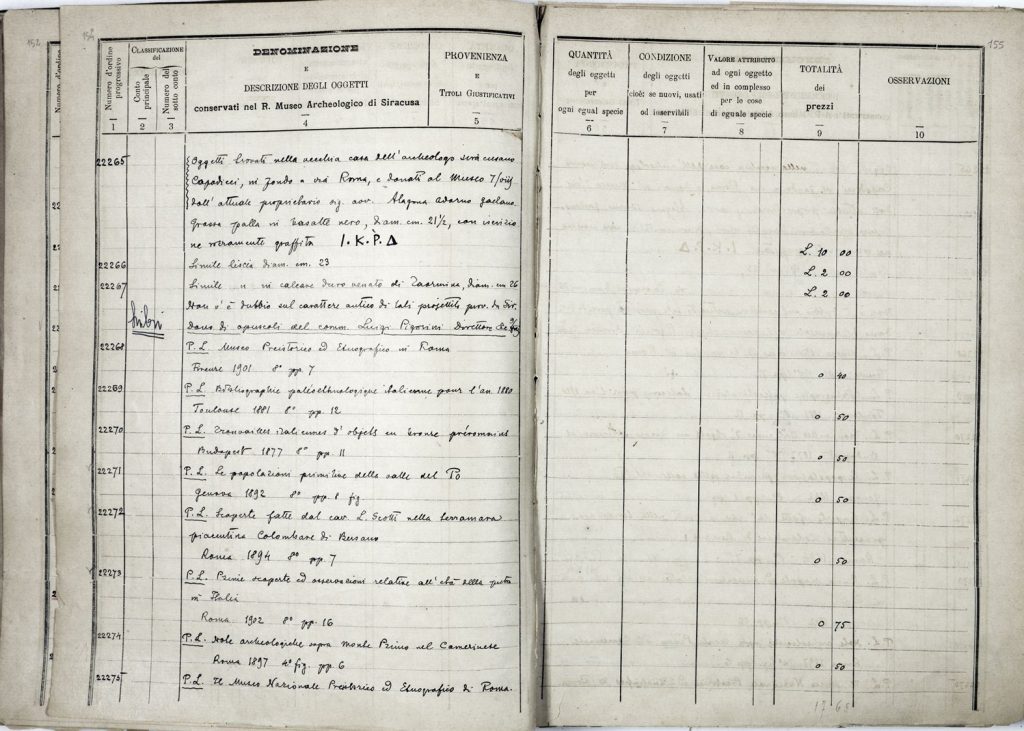 152
154
Numero d'ordine progressivo
CLASSIFICAZIONE
del
Conto principale
Numero del sotto conto
DENOMINAZIONE
E
DESCRIZIONE DEGLI OGGETTI
conservati nel R. Museo Archeologico di Siracusa
PROVENIENZA
E
TITOLI GIUSTIFICATIVI
1
2
3
4
5
22265
Oggetti trovati nella vecchia casa dell'archeologo siracusano
Capodieci, in fondo a via Roma, e donati al Museo
dall'attuale proprietario sig. avv. Alagona Adorno Gaetano.
Grossa palla in basalte nero, diam. cm. 21½, con iscrizio
ne veramente graffita I.K.P.Δ
22266
Simile liscia diam. cm. 23
22267
Simile " in calcare duro venato di Taormina, diam. cm 26
Non v'è dubbio sul carattere antico di tali projettili
Libri
Dono di opuscoli del comm. Luigi Pigorini Direttore
22268
P. L. Museo Preistorico ed Etnografico in Roma
Firenze 1901 8° pp. 7
22269
P. L. Bibliographie paléoethnologique italienne pour l'an. 1880
Toulouse 1881 8° pp. 12
22270
P. L. Trouvailles italiennes d'objets en bronze préromains
Budapest 1877 8° pp. 11
22271
P. L. Le popolazioni primitive della valle del Po
Genova 1892 8° pp. 8 fig.
22272
P. L. Scoperte fatte dal cav. L. Scotti nella terramara
piacentina Colombare di Bersano
Roma 1894 8° pp. 7
22273
P. L. Prime scoperte ed osservazioni relative all'età della pietra
in Italia
Roma 1902 8° pp. 16
22274
P. L. Note archeologiche sopra Monte Primo nel Camerinese
Roma 1897 4° fig. pp. 6
22275
P. L. Il Museo Nazionale Preistorico ed Etnografico di Roma.
155
QUANTITÀ
degli oggetti
per
ogni egual specie
CONDIZIONE
degli oggetti
cioè: se nuovi, usati
od inservibili
VALORE ATTRIBUITO
ad ogni oggetto
ed in complesso
per le cose
di eguale specie
TOTALITÀ
dei
prezzi
OSSERVAZIONI
6
7
8
9
10
L. 10 00
L. 2 00
L. 2 00
0 40
0 50
0 50
0 50
0 50
0 75
0 50
17 65